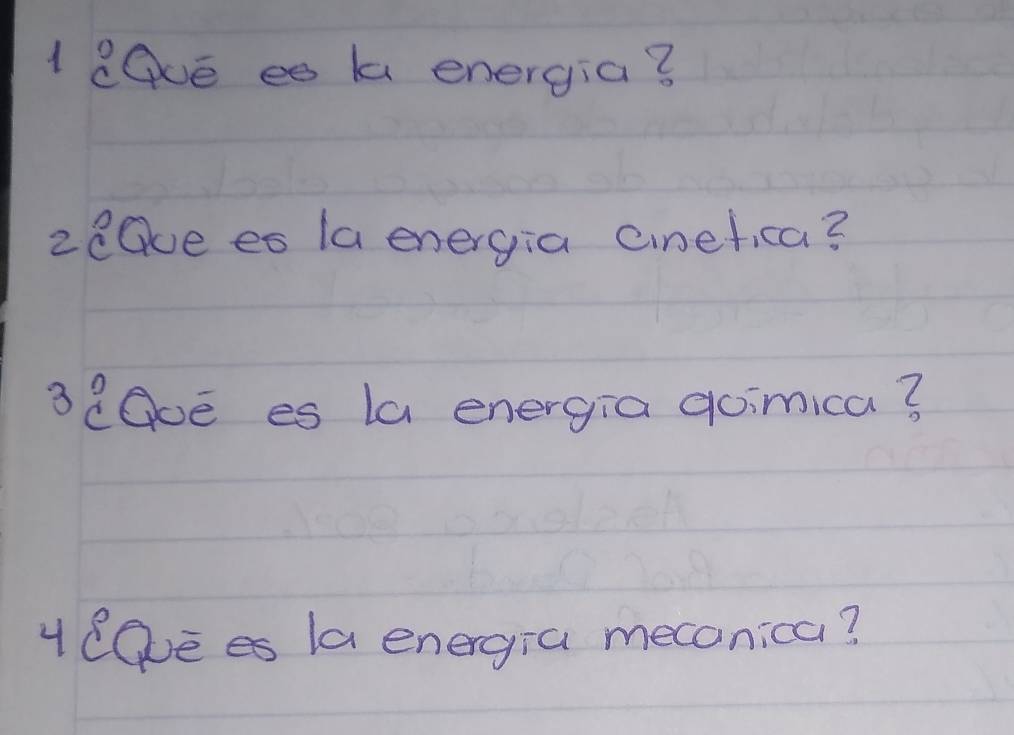 1 ¿Qué es la energia?
2 ¿Que es la energia cinetica?
3 ¿Qué es la energia química?
4 ¿Qué es la energia mecanica?